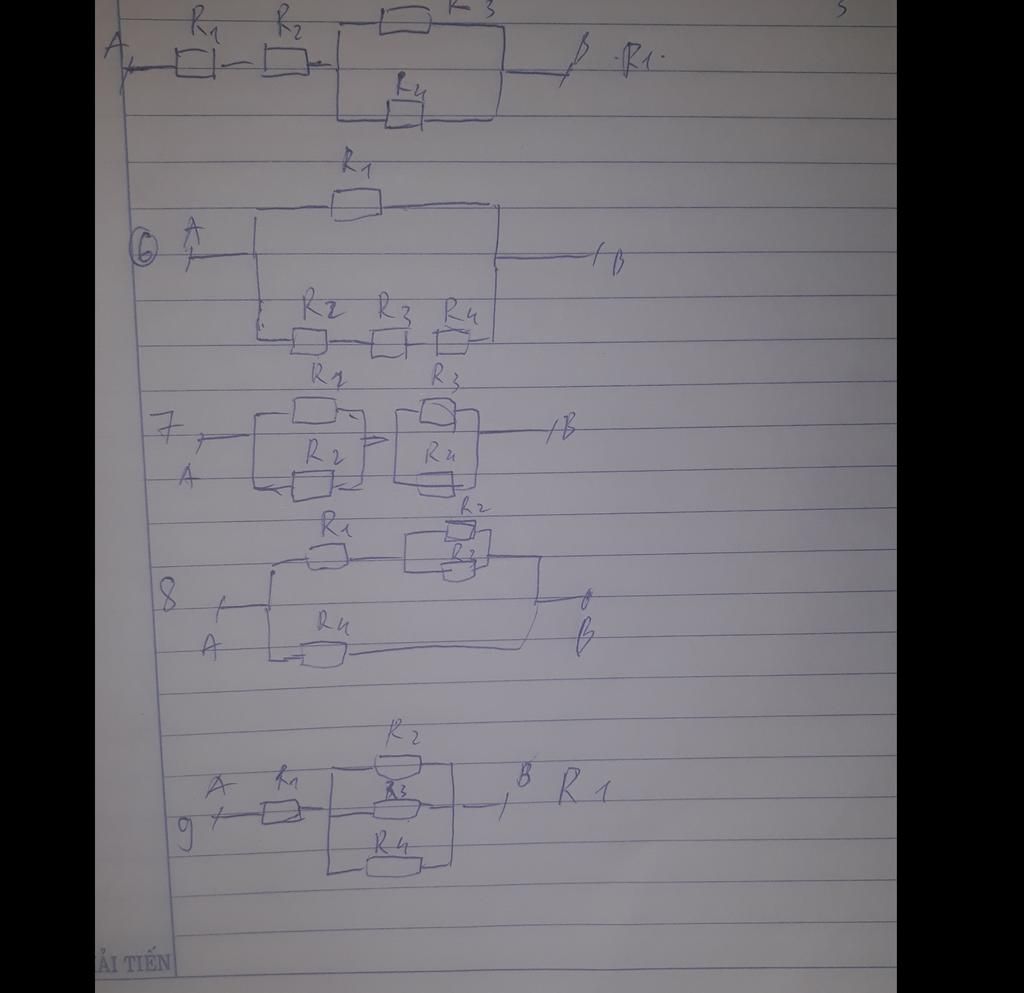 R3
A R1 R2 B R1.
R4
R1
6 A B
R2 R3 R4
R1 R3
7 B
A R2 R4
R2
R1
R3
8
A R4 B
R2
A R1 R3 B R1
9 R4
ẢI TIẾN